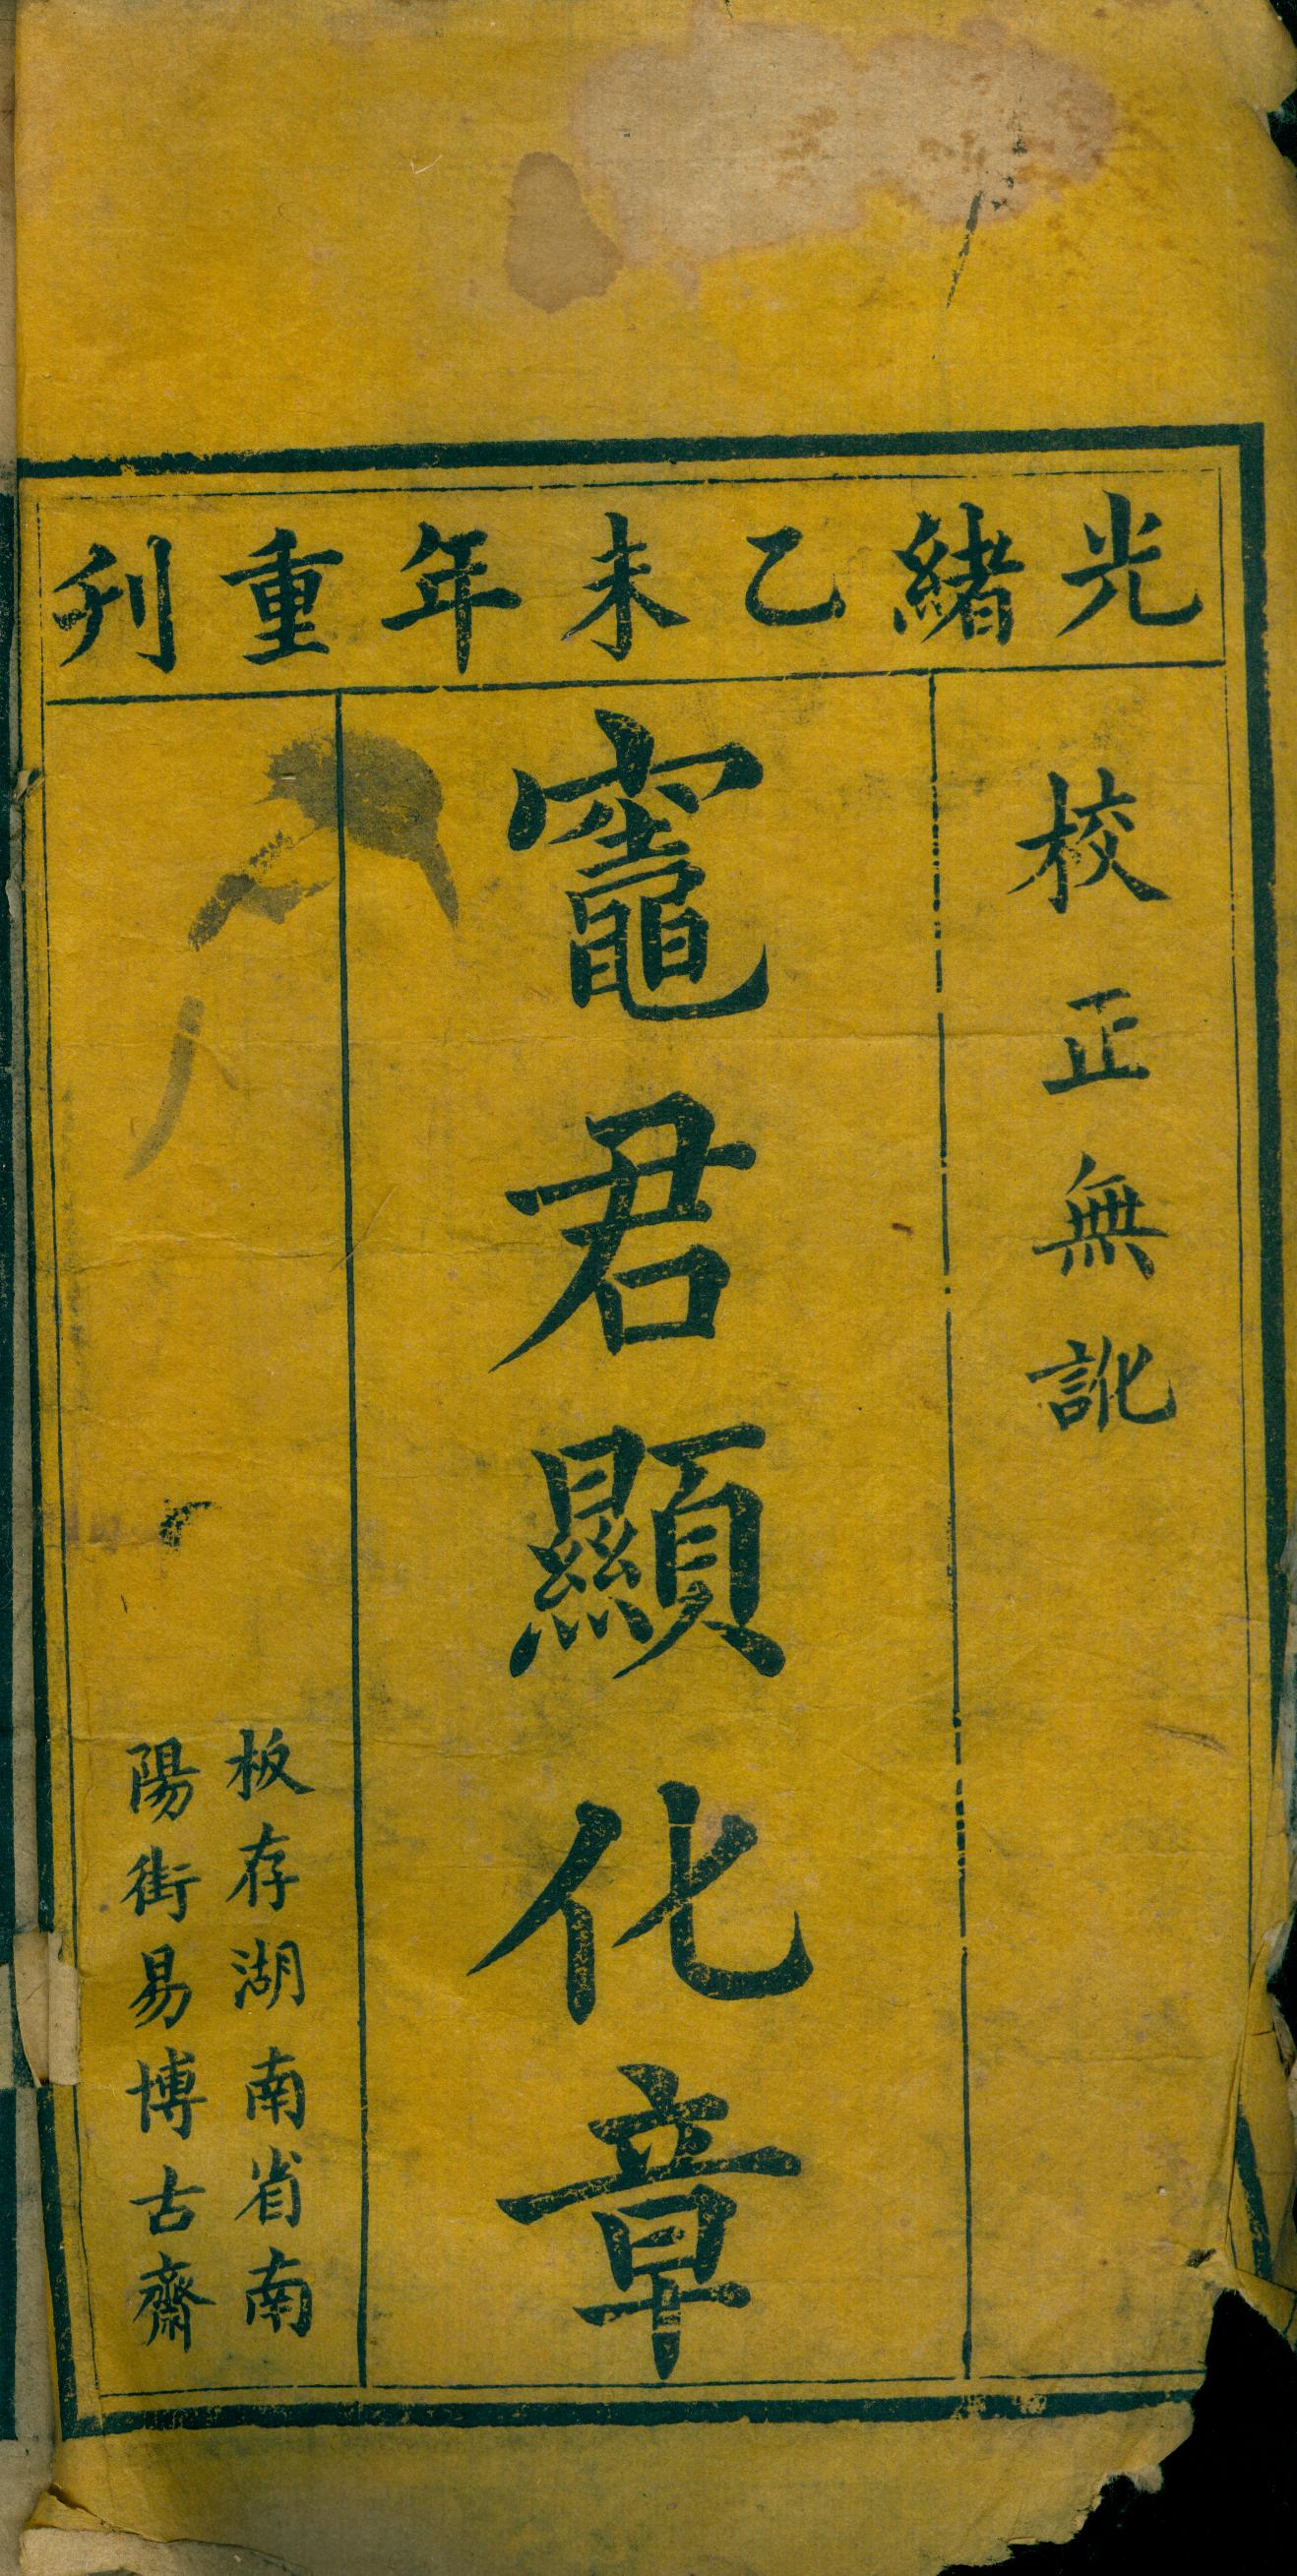 光緒乙未年重刊
校正無訛
竈君顯化章
板存湖南省南
陽街易博古齋